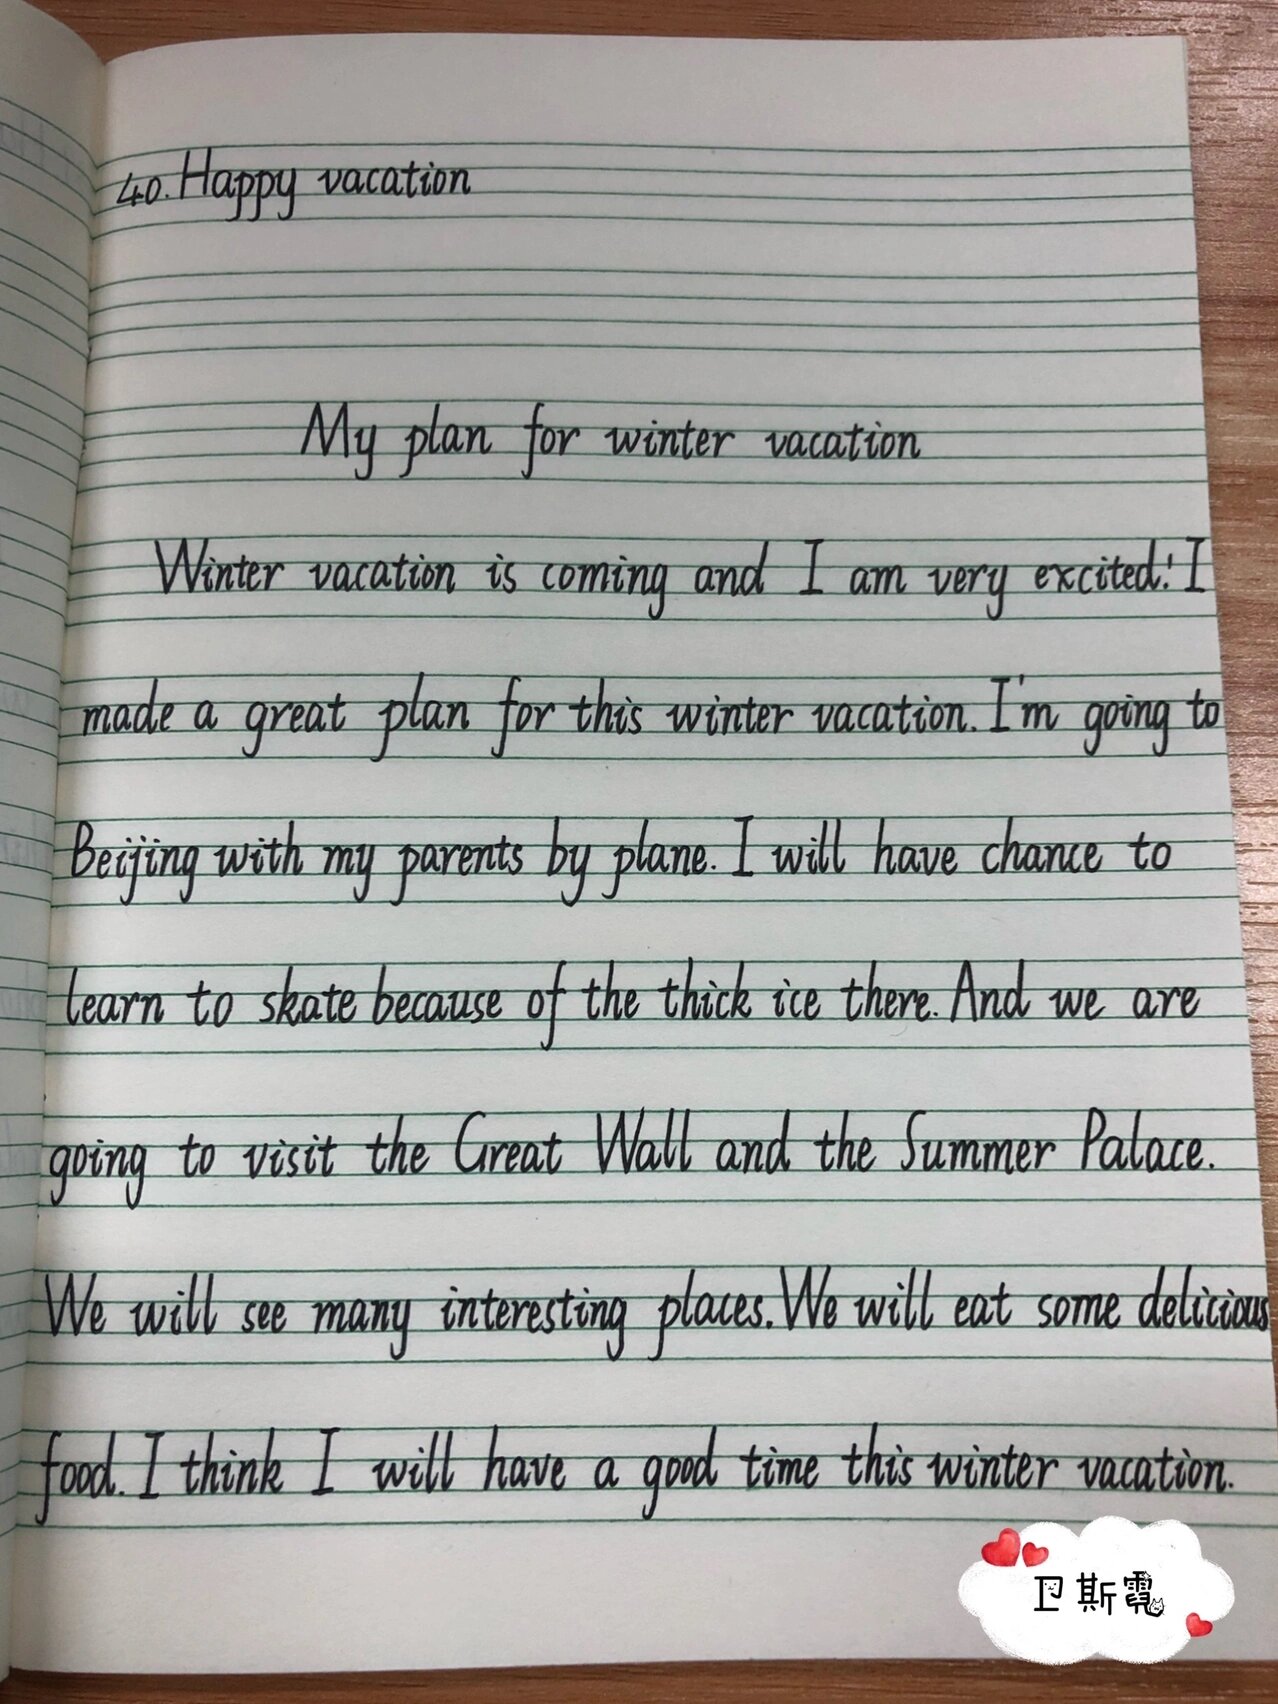 40. Happy vacation
My plan for winter vacation
Winter vacation is coming and I am very excited! I
made a great plan for this winter vacation. I'm going to
Beijing with my parents by plane. I will have chance to
learn to skate because of the thick ice there. And we are
going to visit the Great Wall and the Summer Palace.
We will see many interesting places. We will eat some delicious
food. I think I will have a good time this winter vacation.
卫斯霓